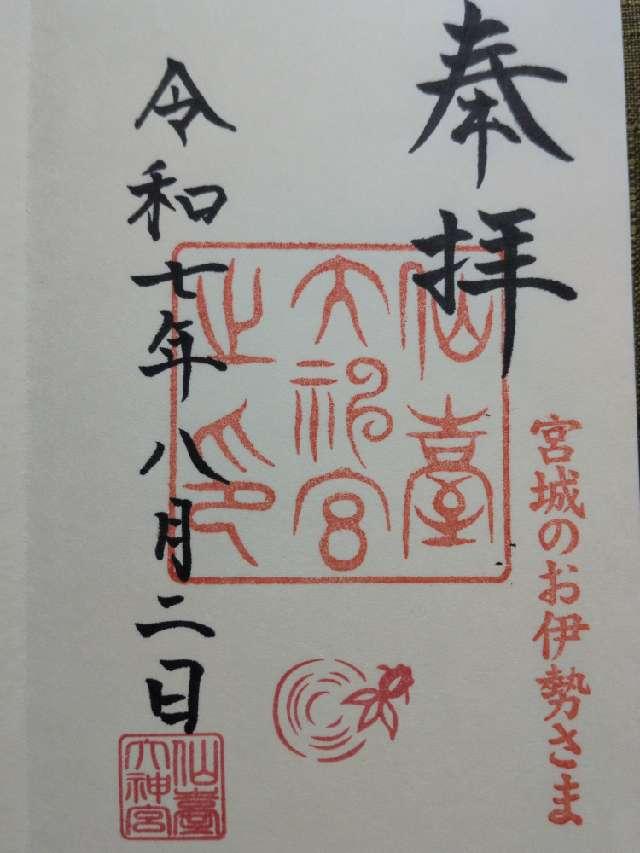 奉拝
宮城のお伊勢さま
仙臺
大神宮
之印
令和七年八月二日
仙臺
大神宮